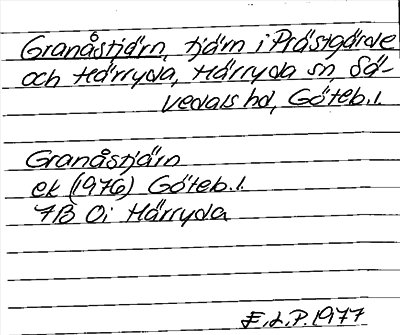 Granåstjärn, tjärn i Prästgärde
och Härryda, Härryda sn Sä-
vedals hd, Göteb.l.
Granåstjärn
ek (1976) Göteb.l.
7B 0i Härryda
E.L.P. 1977